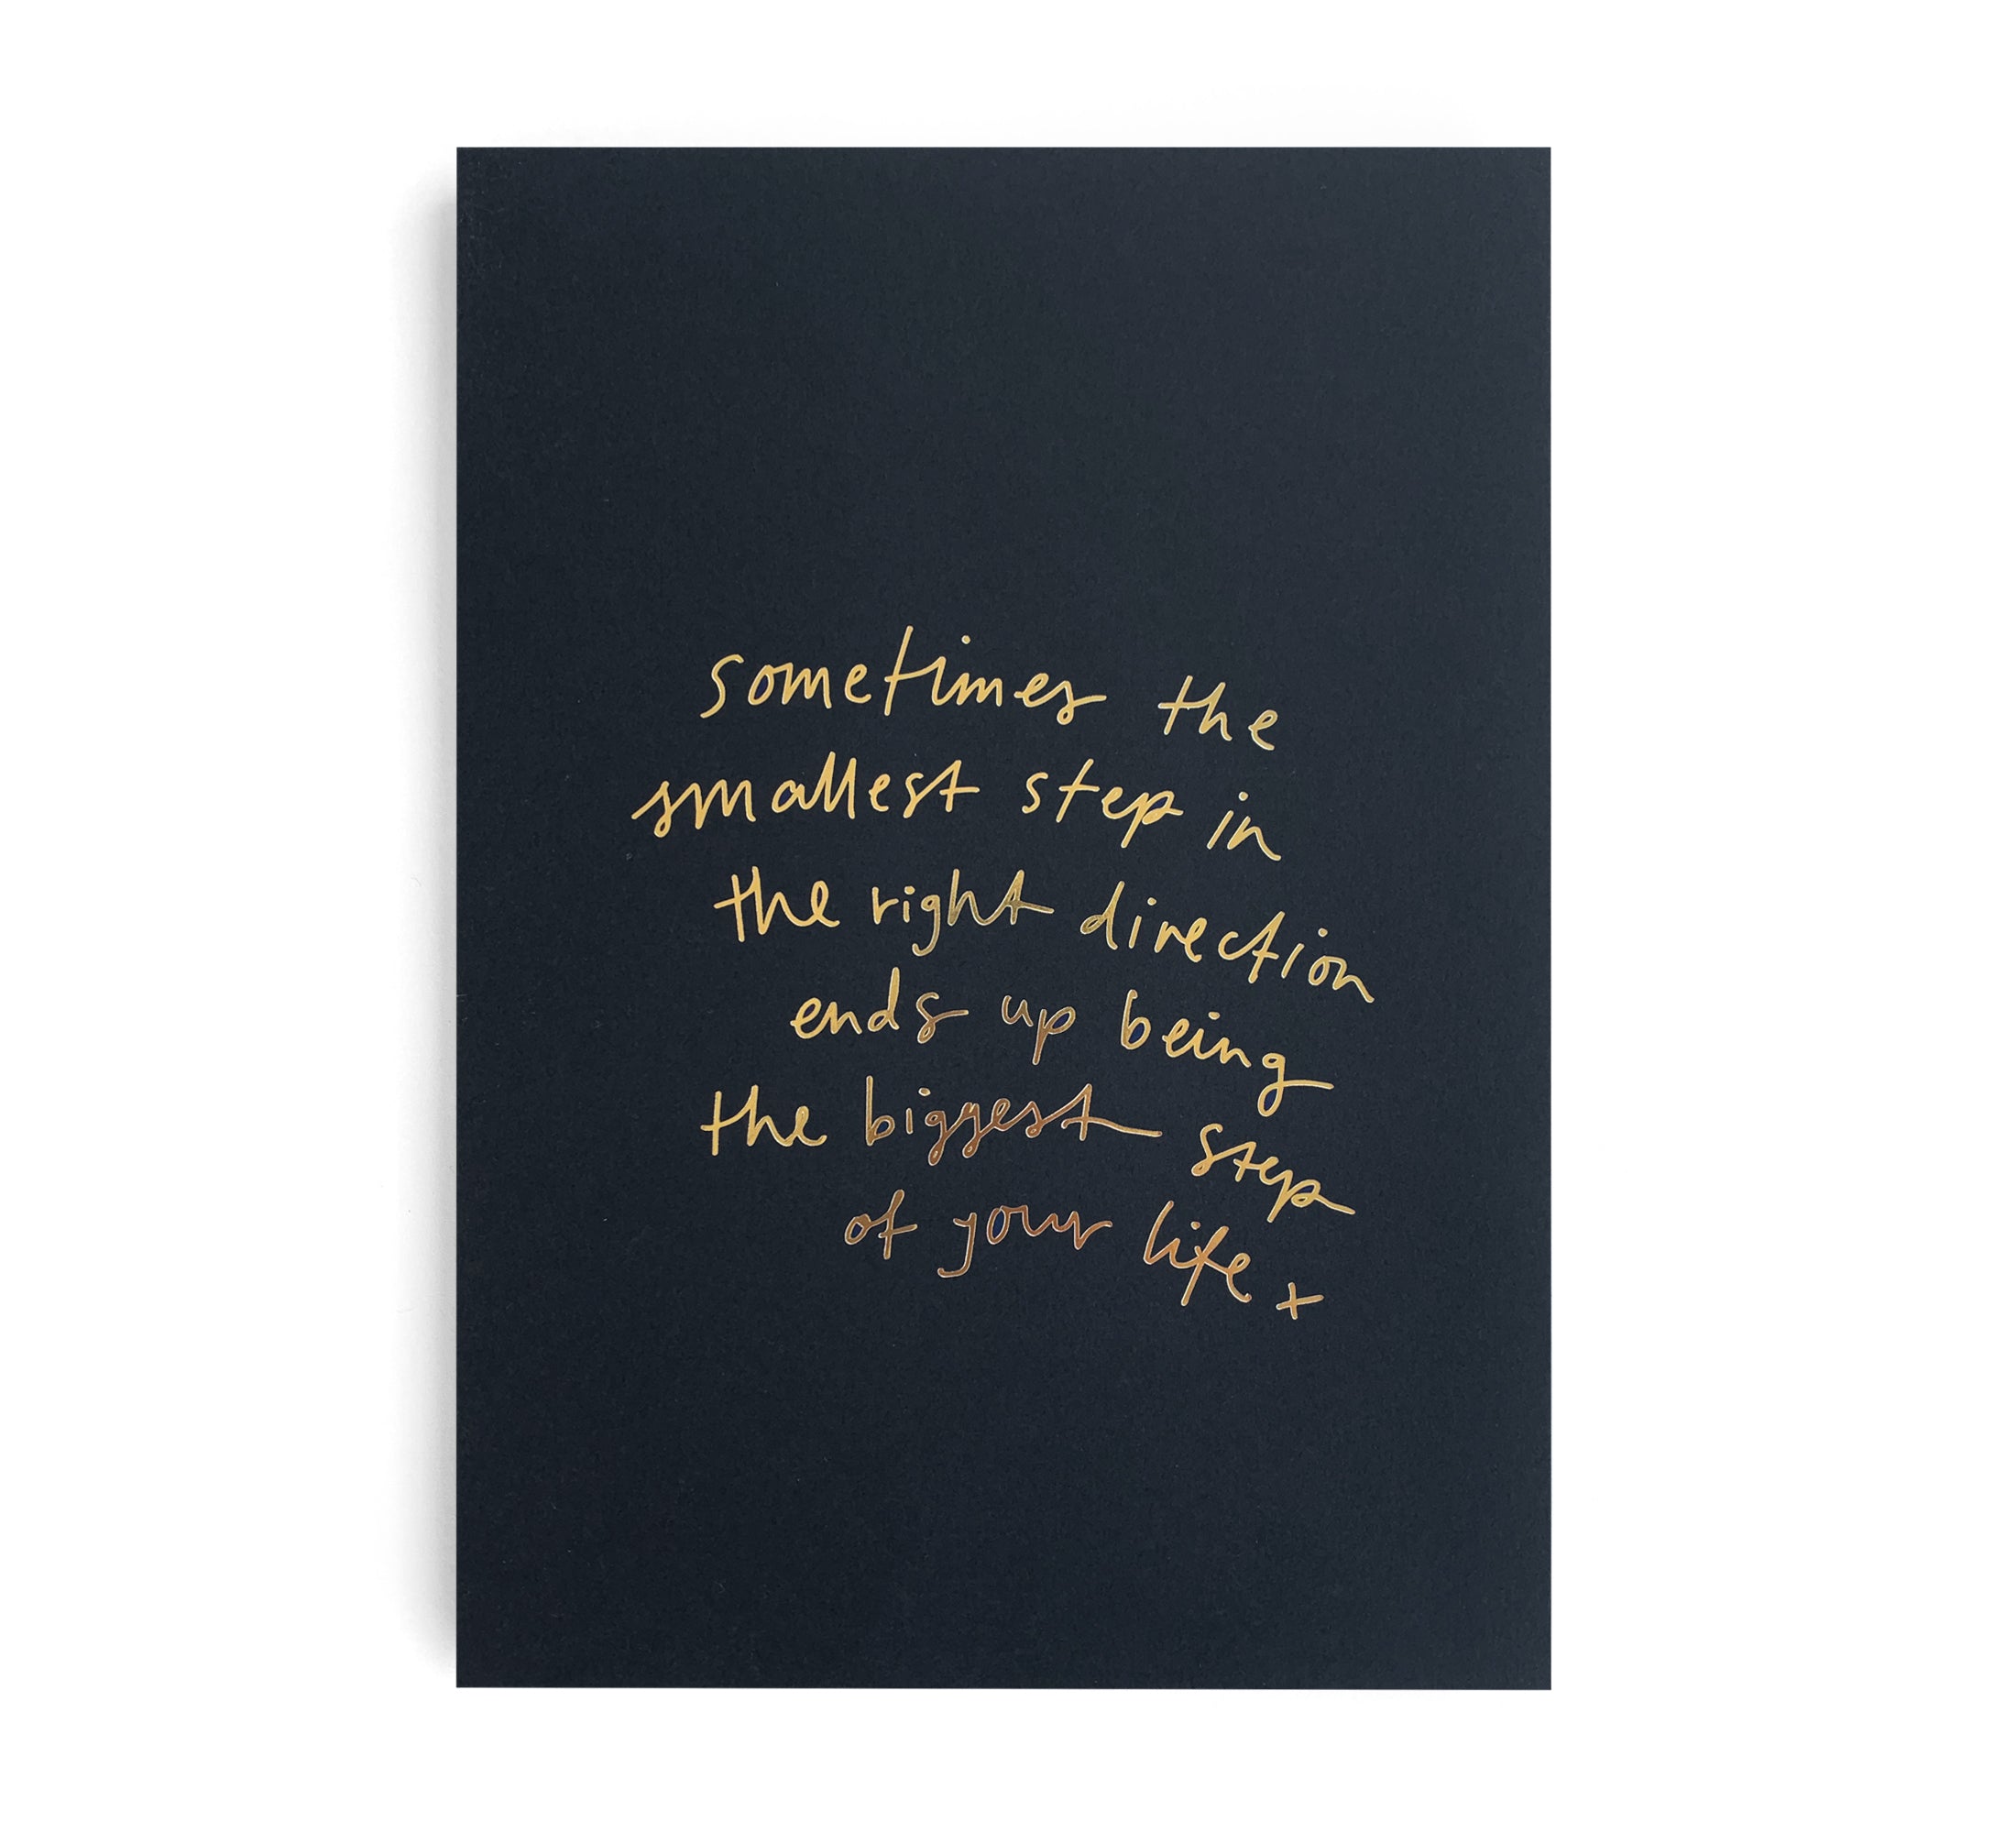 sometimes the
smallest step in
the right direction
ends up being
the biggest step
of your life +